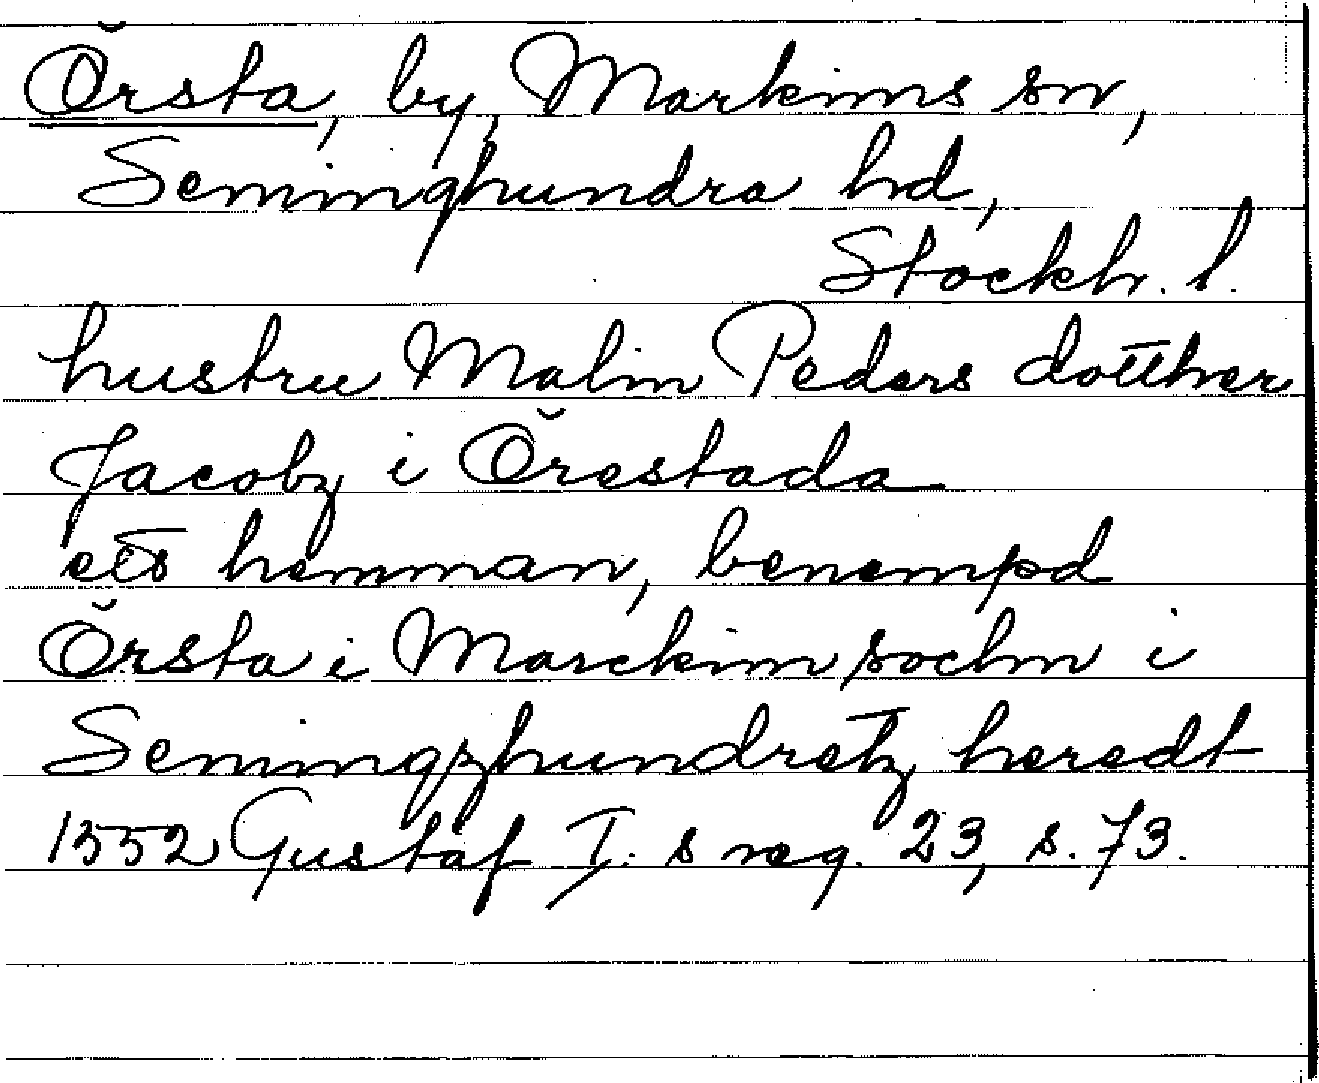 Örsta, by, Markims sn,
Seminghundra hd,
Stockh. l.
hustru Malin Peders dotther
Jacobz i Örestada
ett hemman, benempd
Örsta i Marckim sochn i
Semingzhundretz heredt
1552 Gustaf I:s reg. 23, s. 73.